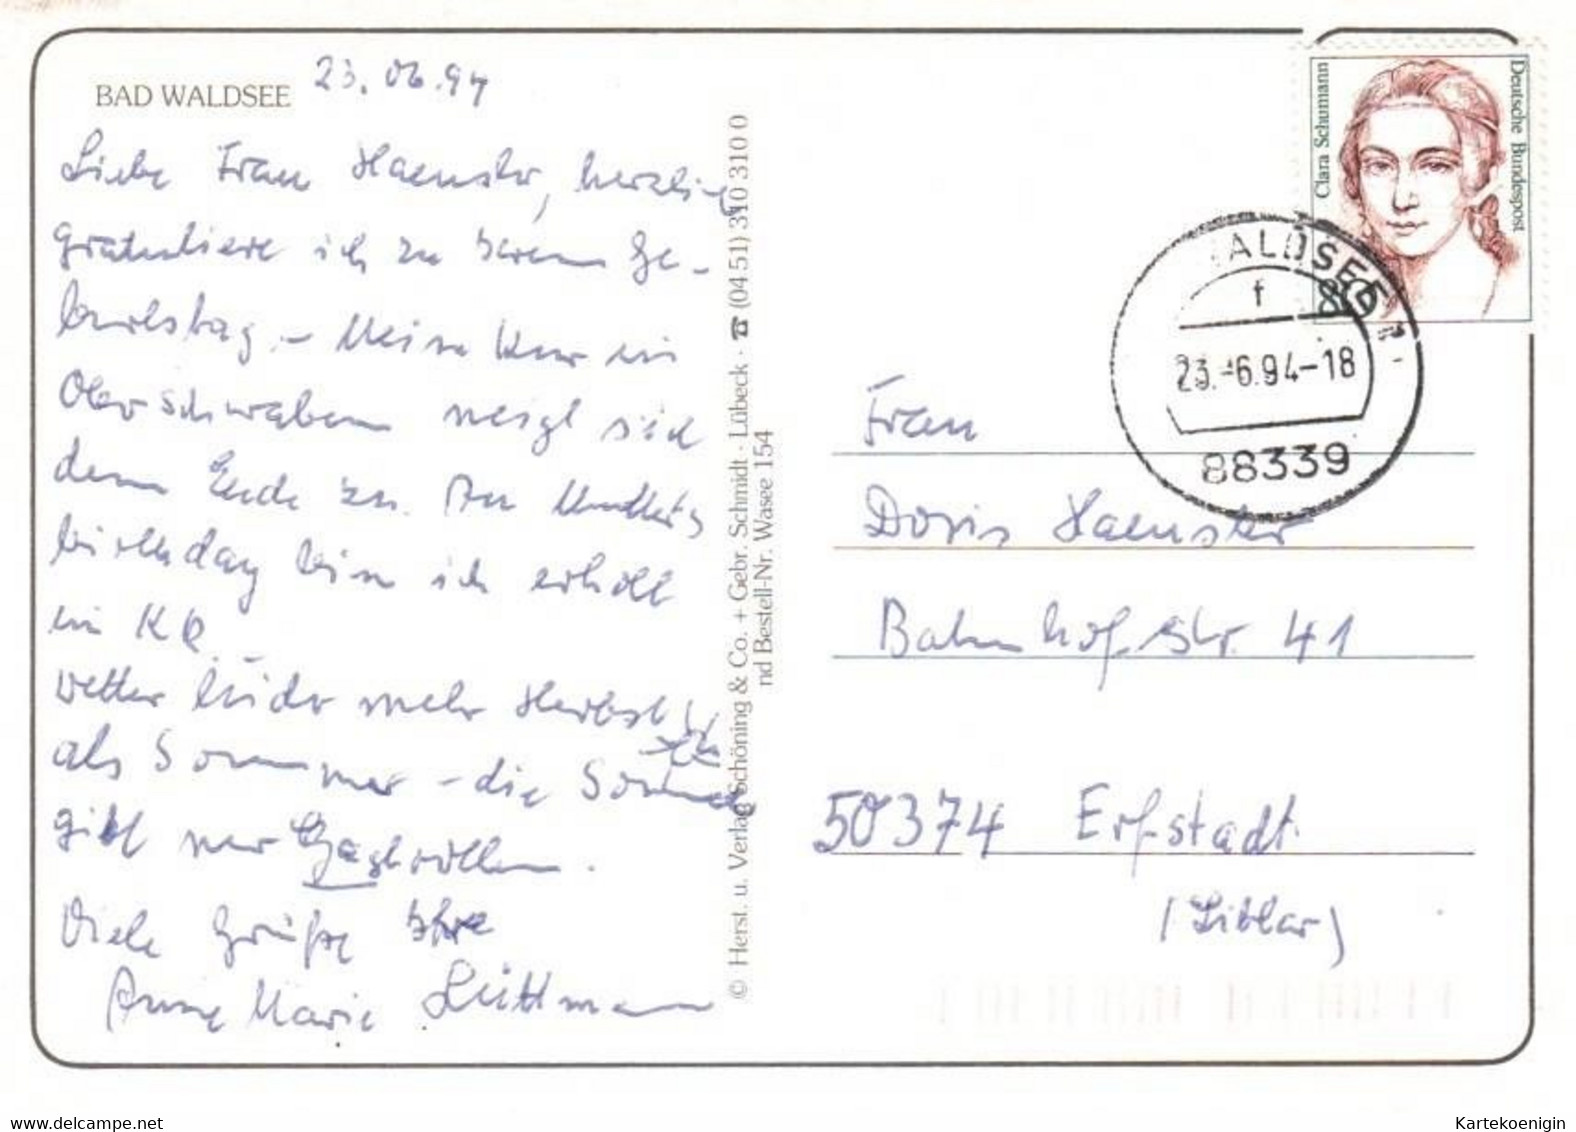 BAD WALDSEE 23.06.94
Liebe Frau Haenster, herzlich
gratuliere ich zu Ihrem Ge-
burtstag. - Meine Kur in
Oberschwaben neigt sich
dem Ende zu. An Mutters
birthday bin ich erholt
in
Wetter leider mehr Herbst
als Sommer - die Sonne
gibt nur Gastrollen.
Viele Grüße Ihre
Anne Marie Lüttmann
© Herst. u. Verlag Schöning & Co. + Gebr. Schmidt · Lübeck · ☎ (04 51) 310 310 0
nd Bestell-Nr. Wasee 154
Clara Schumann
Deutsche Bundespost
80
WALDSEE
f
23.-6.94-18
88339
Frau
Doris Haenster
Bahnhof-Str. 41
50374 Erfstadt
(Liblar)
www.delcampe.net
Kartekoenigin